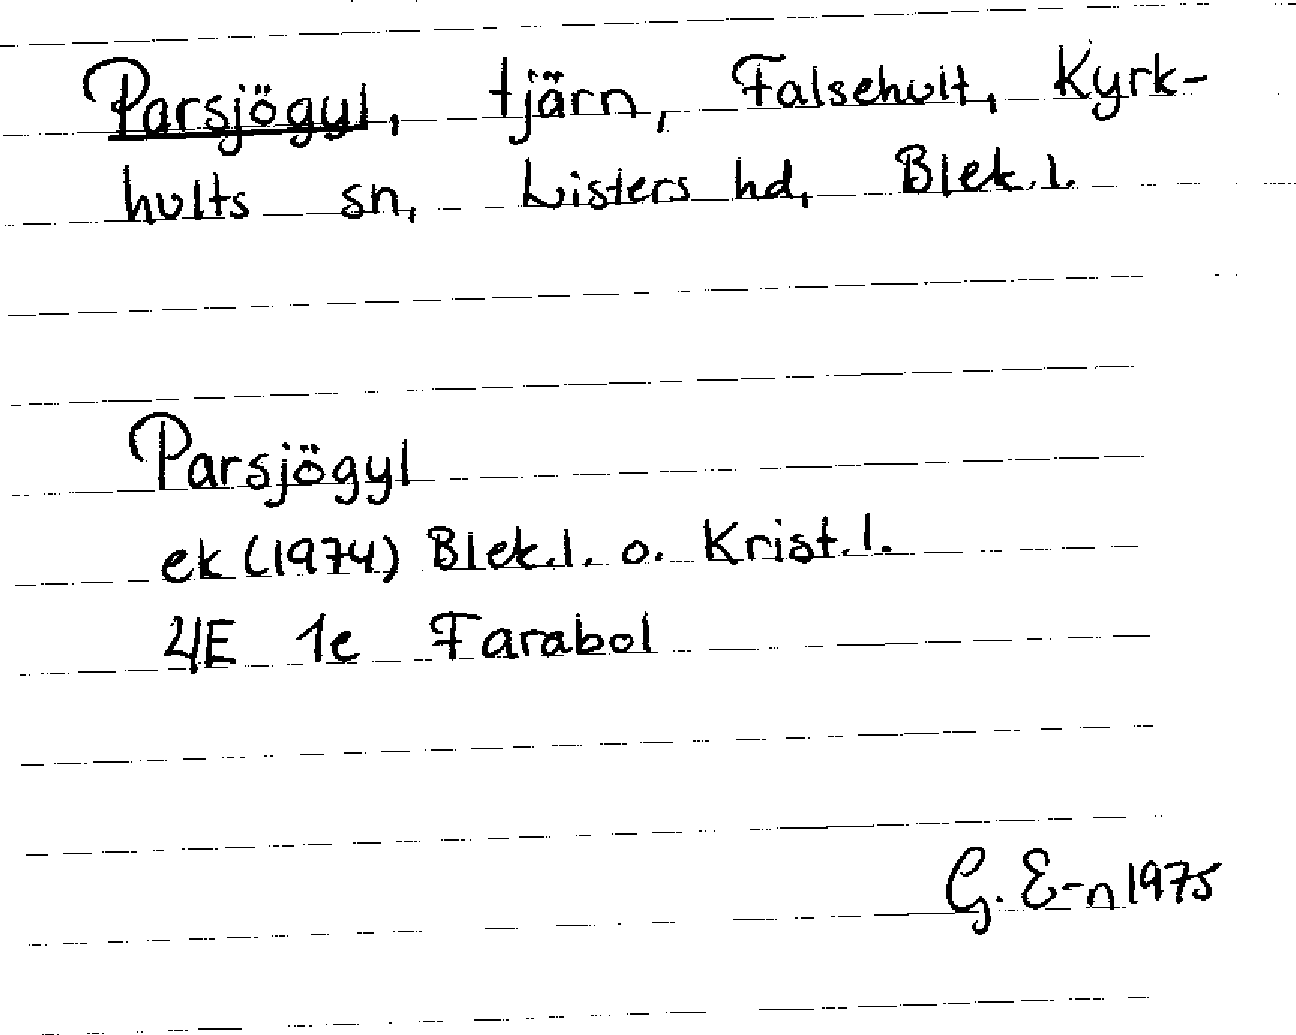 Parsjögyl, tjärn, Falsehult, Kyrk-
hults sn, Listers hd, Blek.l.
Parsjögyl
ek (1974) Blek.l. o. Krist.l.
4E 1e Farabol
G. E-n 1975